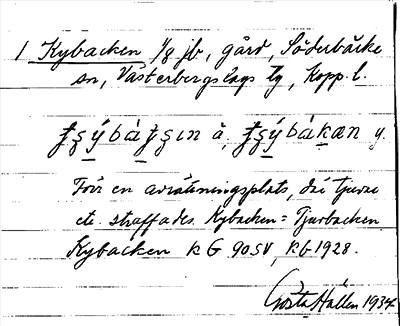 1 Kybacken 1/8 jb, gård, Söderbärke
sn, Västerbergslags tg, Kopp. l.
Förr en avrättningsplats, där tjuvar
etc. straffades. Kybacken = Tjuvbacken
Kybacken KG 90SV, KG 1928.
Gösta Hallén 1934